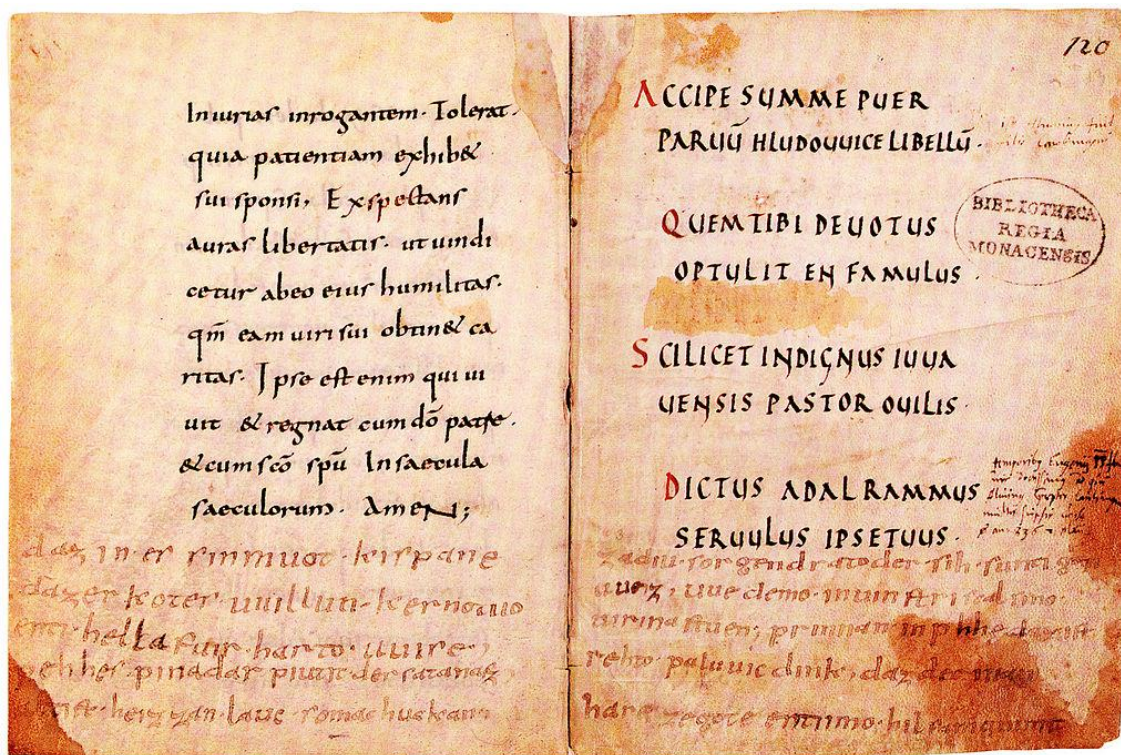 Iniurias inrogantem. Tolerat.
quia patientiam exhib&
sui sponsi, Exspectans
auras libertatis. ut uindi
cetur abeo eius humilitas.
qm̄ eam uiri sui obtin& ca
ritas. Ipse est enim qui ui
uit & regnat cum dō patre.
& cum scō spū In saecula
saeculorum. AmeN;
daz in es sin muot. kispane
daz er kotes. uuillun. kerno tuo
enti. hella fuir. harto. uuise,
pehhes pina dar piutit der satanaz
heizzan. lauc. so mac huckan
120
ACCIPE SUMME PUER
PARUŪ HLUDOUUICE LIBELLŪ.
QUEM TIBI DEUOTUS
OPTULIT EN FAMULUS.
BIBLIOTHECA
REGIA
MONACENSIS
SCILICET INDIGNUS IUUA
UENSIS PASTOR OUILIS.
DICTUS ADALRAMMUS
SERUULUS IPSE TUUS.
za diu. sorgen drato der sih suntigen
uueiz, uue demo. in uinstri scal sino
uirina stuen, prinnan in pehhe daz ist
rehto paluuic dink, daz der man
haret ze gote enti imo. hilfa ni quimit